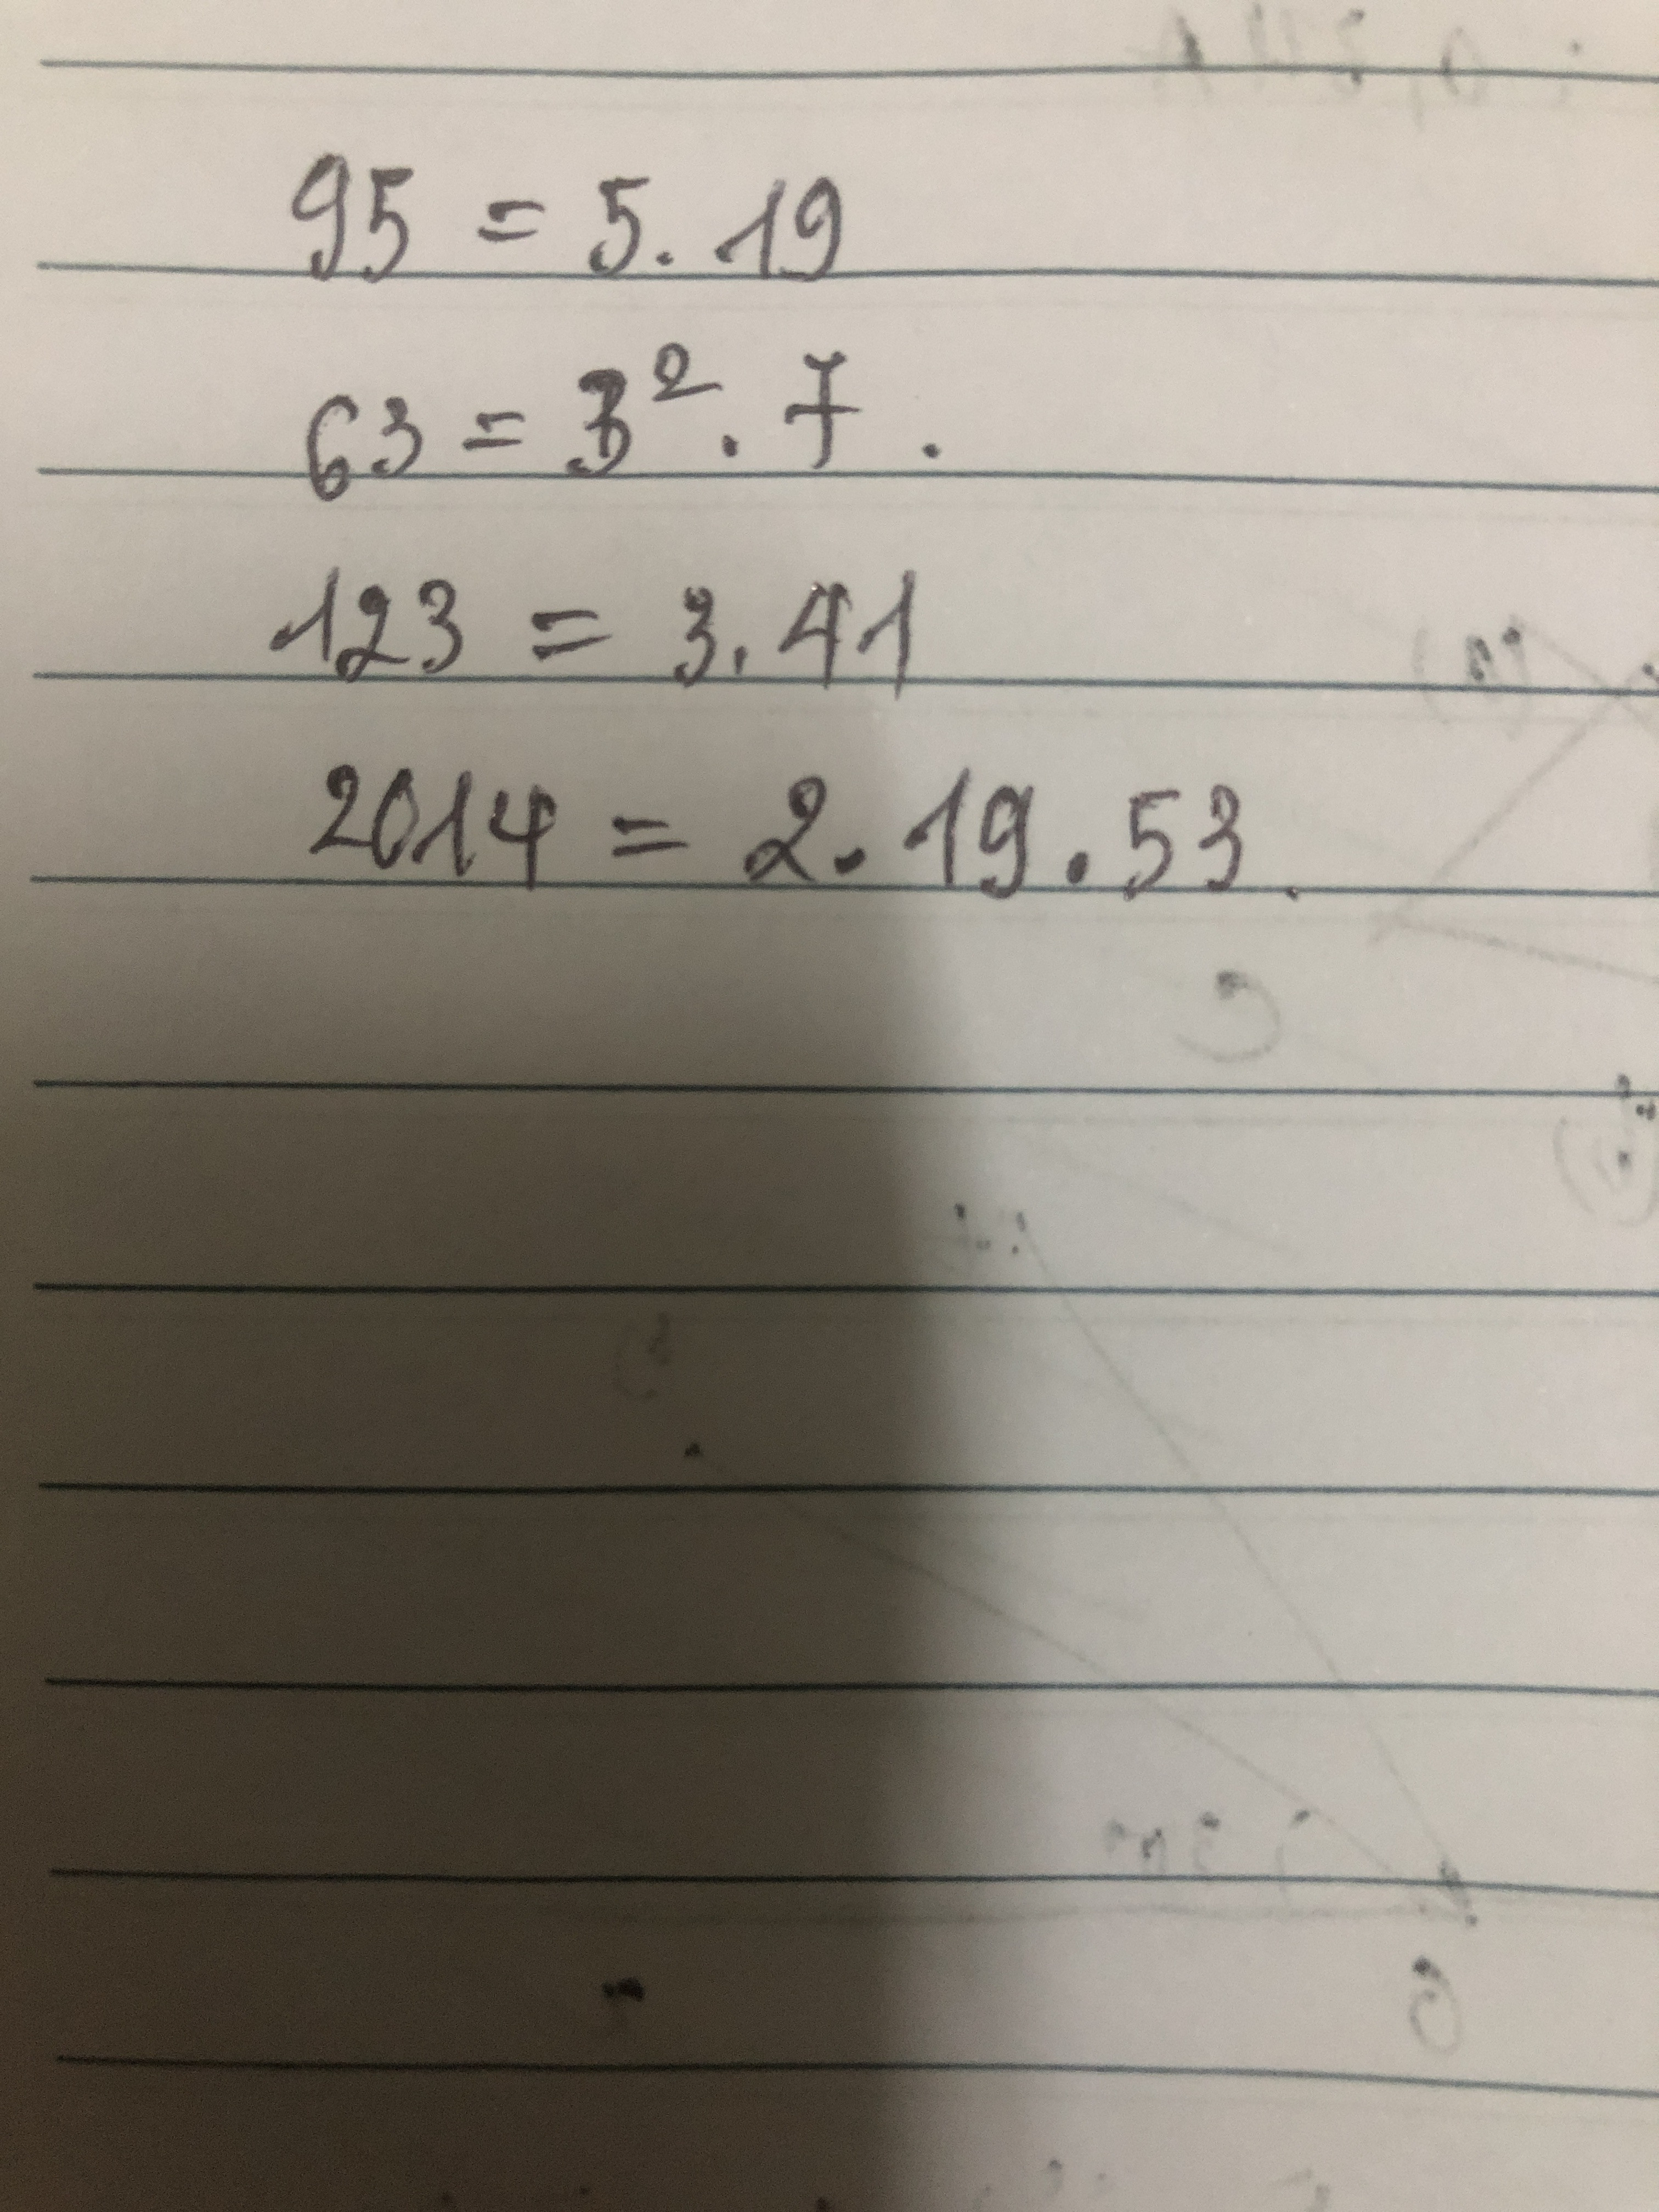 95 = 5.19
63 = 3² . 7 .
123 = 3.41
2014 = 2.19.53.